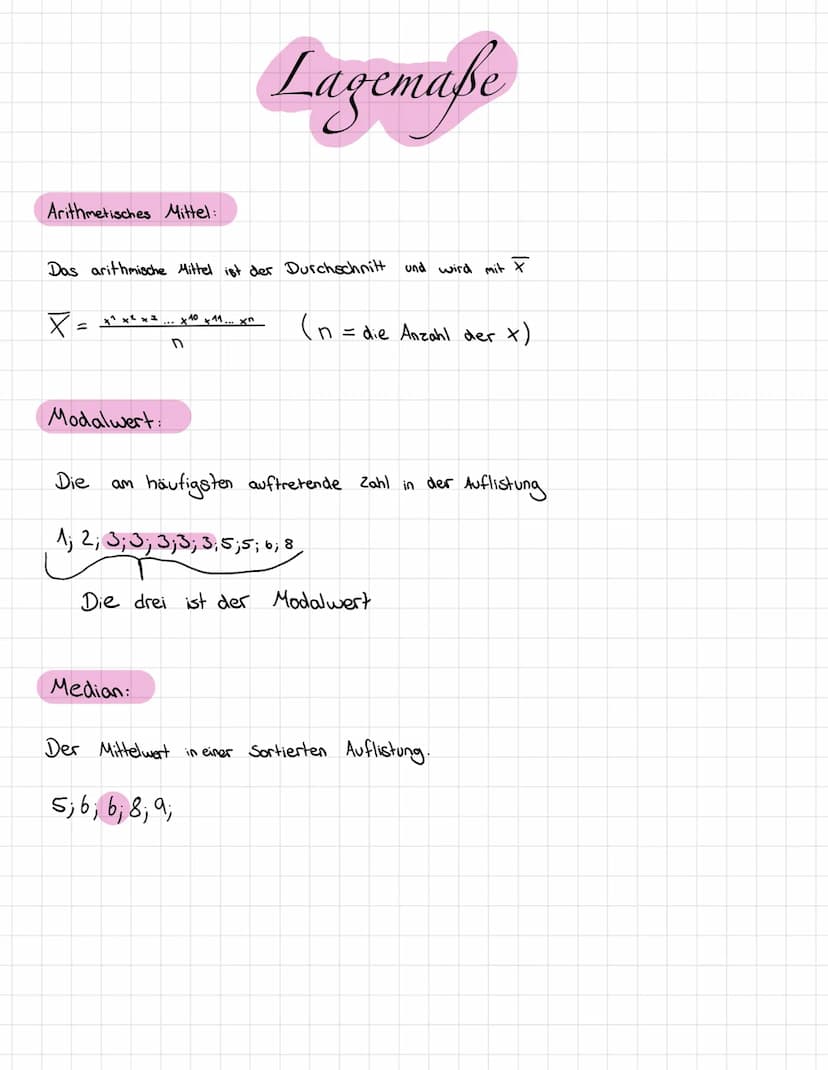 Lagemaße
Arithmetisches Mittel:
Das arithmische Mittel ist der Durchschnitt und wird mit x̅
x̅ = x¹ x² x³ ... x¹⁰ x¹¹ ... xⁿ / n (n = die Anzahl der x)
Modalwert:
Die am häufigsten auftretende Zahl in der Auflistung
1; 2; 3; 3; 3; 3; 3; 5; 5; 6; 8
Die drei ist der Modalwert
Median:
Der Mittelwert in einer Sortierten Auflistung.
5; 6; 6; 8; 9;